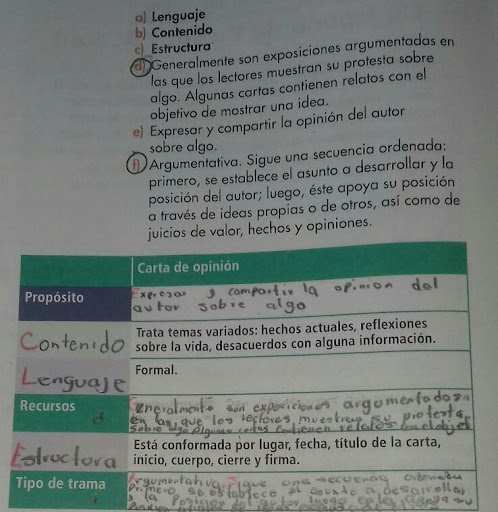 a) Lenguaje
b) Contenido
c) Estructura
d) Generalmente son exposiciones argumentadas en
las que los lectores muestran su protesta sobre
algo. Algunas cartas contienen relatos con el
objetivo de mostrar una idea.
e) Expresar y compartir la opinión del autor
sobre algo.
f) Argumentativa. Sigue una secuencia ordenada:
primero, se establece el asunto a desarrollar y la
posición del autor; luego, éste apoya su posición
a través de ideas propias o de otros, así como de
juicios de valor, hechos y opiniones.
Carta de opinión
Propósito
Expresar y compartir la opinion del
autor sobre algo
Contenido
Trata temas variados: hechos actuales, reflexiones
sobre la vida, desacuerdos con alguna información.
Lenguaje
Formal.
Recursos
d
Generalmente son exposiciones argomentadas
en las que los lectores muestran su protesta
sobre algo Algunas cartas contienen relatos
Estructora
Está conformada por lugar, fecha, título de la carta,
inicio, cuerpo, cierre y firma.
Tipo de trama
Argumentativa una secuencia ordenada
Primero se establece el asunto a desarrollar
y la posicion del autor luego